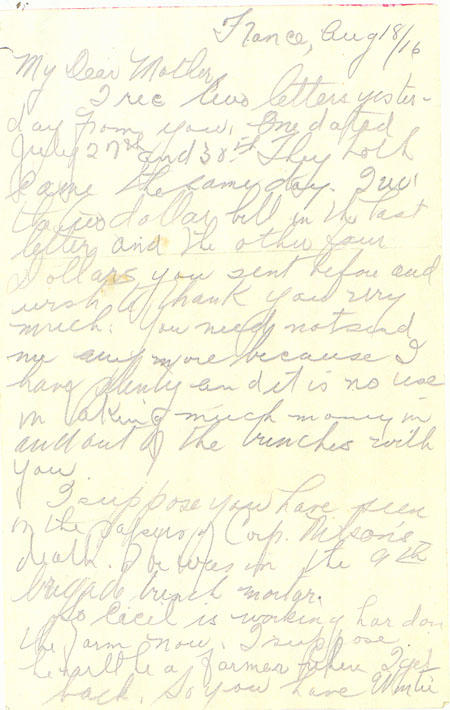 France, Aug 18/16
My Dear Mother,
I rec two letters yester-
day from you. One dated
July 27th and 30th They both
came the same day. I rec
two dollar bill in the last
letter and the other four
dollars you sent before and
wish to thank you very
much. You need not send
me any more because I
have plenty and it is no use
in taking much money in
and out of the trenches with
you
I suppose you have seen
in the papers of Corp.
death. He was in the 9th
brigade trench mortar.
So Cecil is working hard on
the farm now. I suppose
he will be a farmer when I get
back. So you have